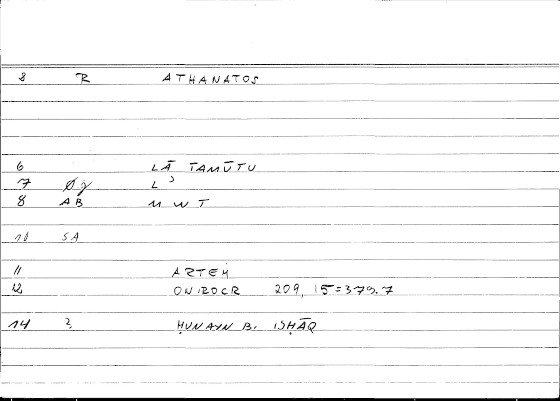 8 R ATHANATOS
6 LĀ TAMŪTU
7 Øy L ᵓ
8 AB M W T
10 SA
11 ARTEM
12 ONIROCR 209, 15=379.7
14 2 ḤUNAYN B. ISḤĀQ